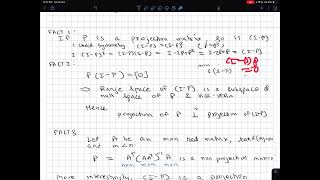 FACT 1:
If P is a projection matrix, so is (I-P)
Check symmetry (I-P)ᵀ = (I-Pᵀ) = (I-P)
(I-P)² = (I-P)(I-P) = I-2P+P² = I-2P+P = (I-P)
FACT 2:
P(I-P) = [0]
⇒ Range space of (I-P) is a subspace of
null space of P & vice-versa
Hence
projection of P ⊥ projection of (I-P)
FACT 3
Let A be an mxn matrix, rank(A)=m
and m<n.
P = Aᵀ(AAᵀ)⁻¹A is a nxn projection matrix
More interestingly, (I-P) is a projection